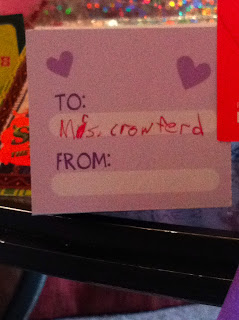 TO:
Mrs. crowferd
FROM: